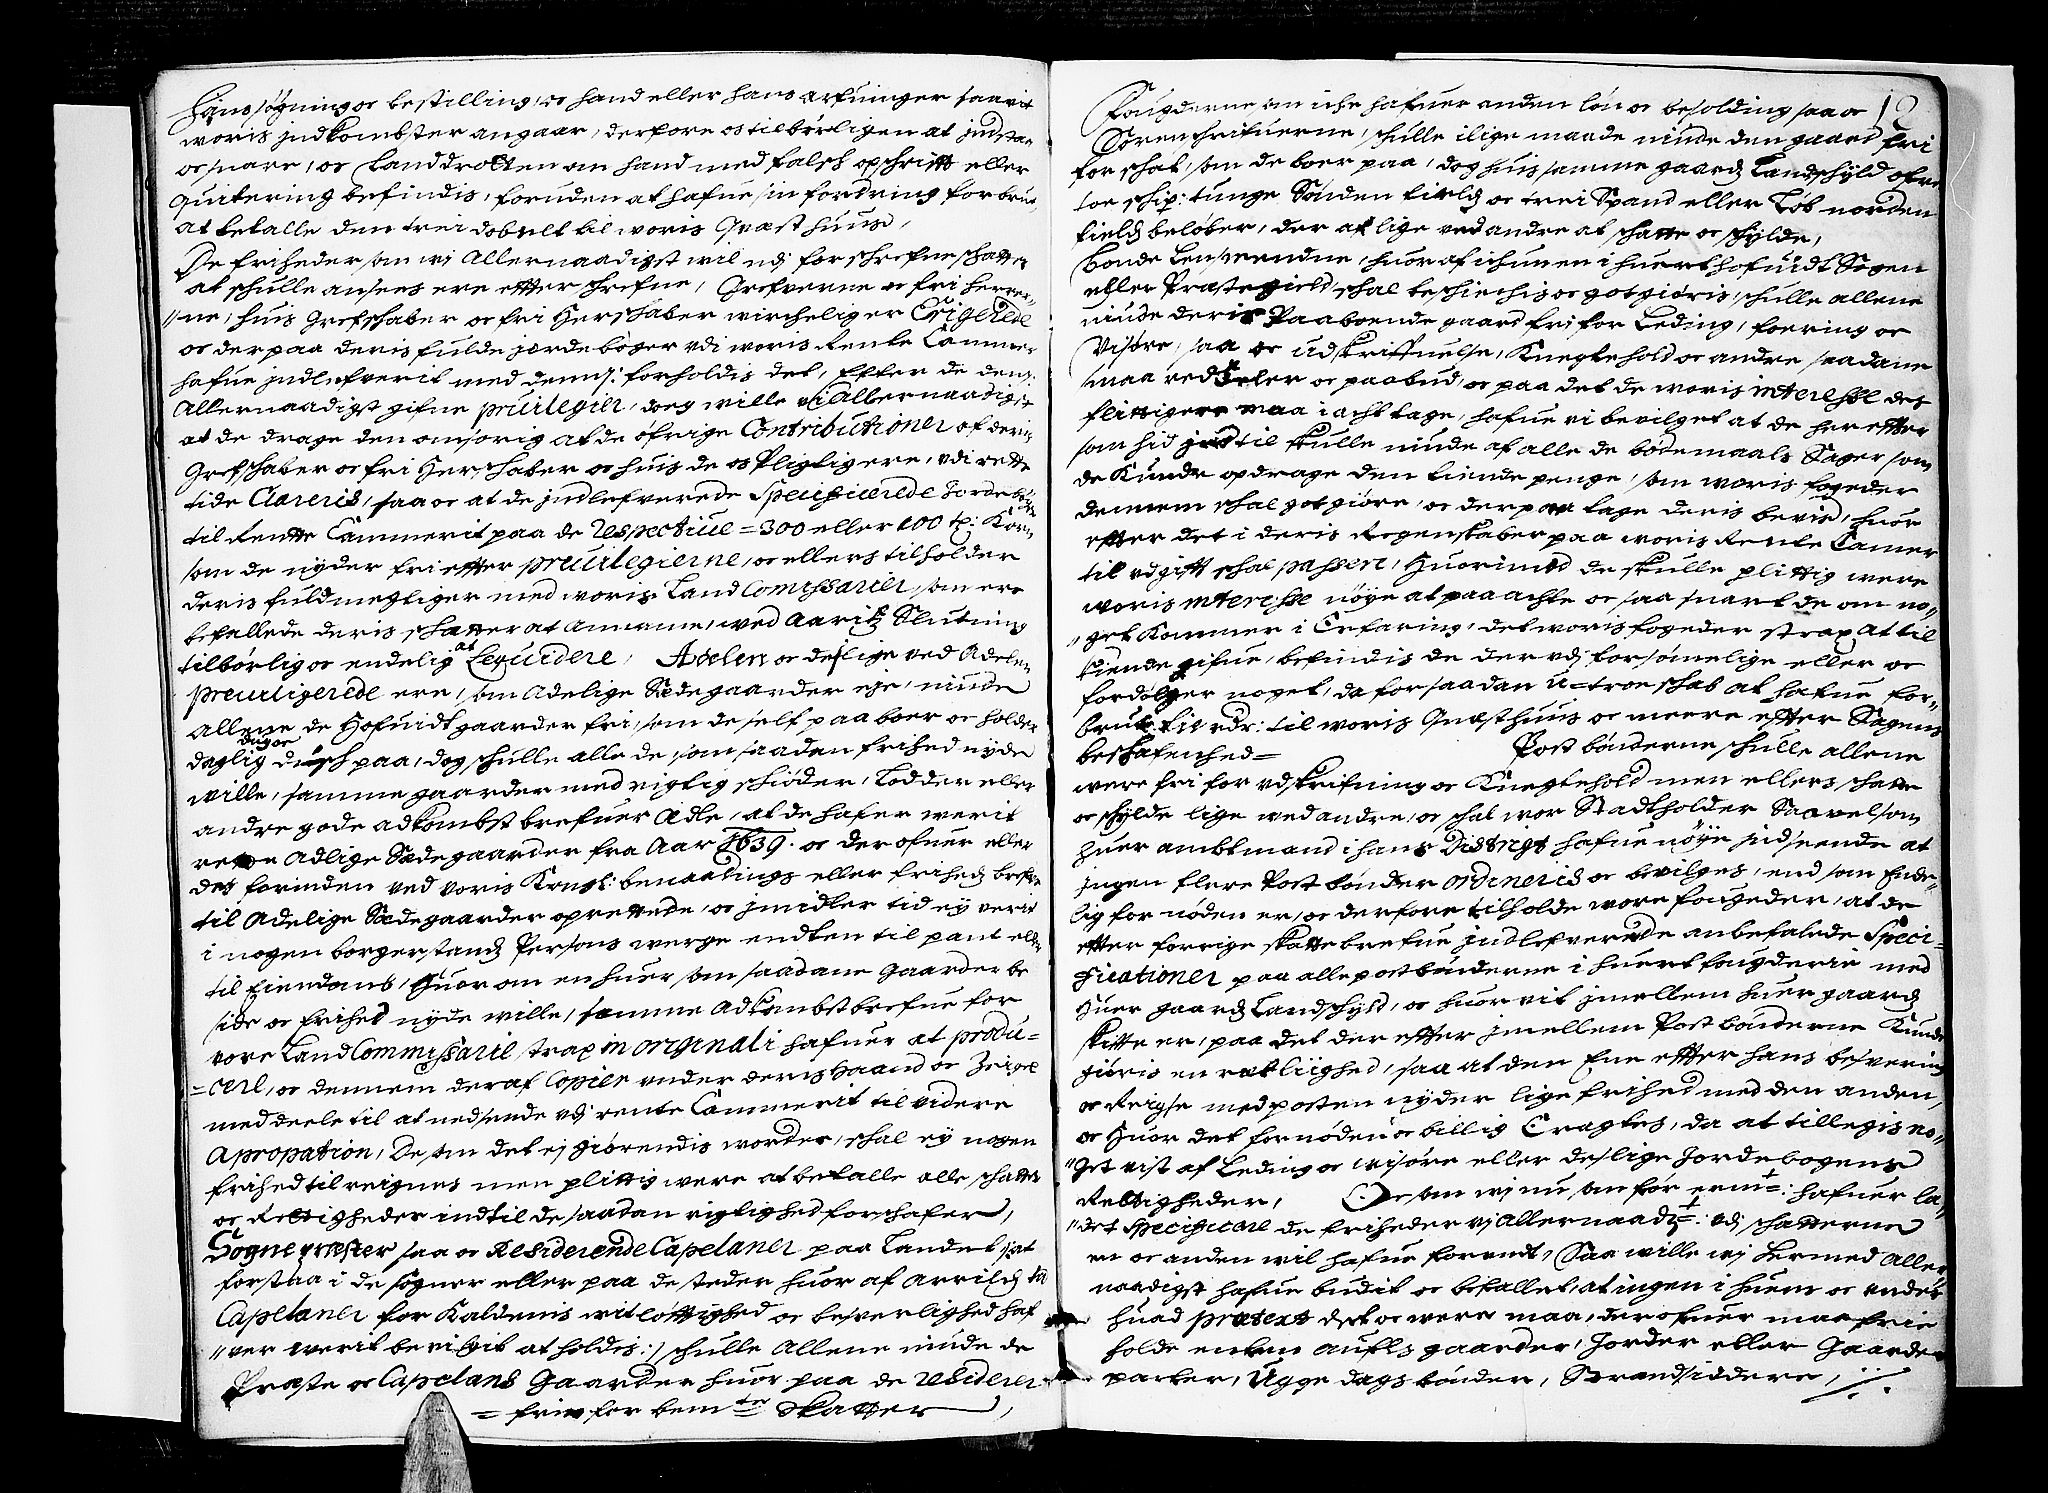 hans søgning oc bestilling, oc hand eller hans arfuinger saavit
woris jndkombster angaar, derfore os tilbørligen at jndstaa
oc suare, oc Landdrotten om hand med falsk opschrifft eller
quitering befindis, foruden at hafue sin fordring forbrut,
at betalle den trei dobbelt til woris Qvæsthuus,
De friheder som wj Allernaadigst wil udj forschrefne schatter
at schulle ansees ere effter schrefne, Grefverne oc fri herrer-
"ne, huis Grefschaber oc fri Herschaber wircheliger Erigerede
oc der paa deris fulde jordebøger udi woris Rente Cammer
hafue jndlefverit med dennem forholdis det, Efter de dem
Allernaadigst gifne privilegier, doeg wille vi Allernaadigst
at de drage den omsorig at de øfrige Contributioner af deris
Grefschaber oc fri Herschaber oc huis de os Pligtig ere, udi rette
tide Clareris, saa oc at de jndlefverede Specificerede Jordebøger
til Rentte Cammerit paa de Respective = 300 eller 100 tr: Korn
som de nyder fri effter previlegierne, oc ellers tilholder
deris fuldmegtiger med woris Land Comissarier, som ere
befallede deris schatter at annamme, wed Aaritz Slutning
tilbørlig oc endelig at Leqvidere, Adelen oc deslige ved Adelen
previligerede ere, som Adelige Sædegaarder eje, niude
allene de Hofuidtgaarder fri, som de self paa boer oc holder
daglig dug oc disch paa, dog schulle alle de, som saaden frihed nyde
wille, samme gaarder med rigtig schiøder, Lodder eller
andre gode adkombst brefuer Adle, at de hafer werit
rette Adlige Sædegaarder fra Aar 1639. oc derofuer eller
des forinden ved voris Kongl: benaadings eller friheds brefue
til Adelige Sædegaarder oprettede, oc jmidler tid ej verit
i nogen borgerstands Persons werge endten til pant eller
til Eiendomb, Huor om en huer som saadane Gaarder be
side oc frihed nyde wille, samme Adkombst brefue for
vore Land Commissarie strax in originali hafuer at produ=
=cere, oc dennem deraf Copier under deris haand oc Zeigel
meddeele til at nedsende udj rente Cammerit til videre
Apropation, Desom det ej giørendis worder, schal ej nogen
frihed tilreignes men plittig were at betalle alle schatter
oc Rettigheder indtil de saadan rigtighed forschafer,
Sognepræster saa oc Residerende Capelaner paa Landet /: at
forstaa i de sogner eller paa de steder huor af Arrilds tid
Capelaner for Kaldenis witløftighed oc besverlighed haf
"ver werit bevilgit at holdes :/ schulle Allene niude de
Præste oc Capelans Gaarder huor paa de residerer
= frie for bemte Skatter,
12
Fougderne om iche hafuer anden løn oc besolding saa oc
Sorenschrifuerne, schulle i lige maade niude den gaard fri
for schat, som de boer paa, dog huis samme gaards Landschyld ofver
toe schip: tunge Sønden fields oc trei Spand eller Løb norden
fields beløber, der af lige ved andre at schatte oc schylde,
bonde Lensmendne, huor af ichun en i huert hofuidt Sogen
eller Præstegield schal beschichis oc got giøris, schulle allene
niude deris Paaboende gaard fri for Leding, foering oc
Visøre, saa oc udskriffuelse, Knegtehold oc andre saadane
smaa redseler oc paabud, oc paa det de woris interesse des
flittigere maa i acht tage, hafue vi bevilget at de her effter
som hid jndtil skulle niude af alle de bødemaals Sager som
de Kunde opdrage den tiende penge, som woris fogeder
dennem schal got giøre, oc der paa tage deris bevis, huor
effter det i deris Regenskaber paa woris Rente Camer
til udgifft schal passere, Huorimod de skulle plittig were
woris interesse nøye at paaachte oc saa snart de om no,
"get Kommer i Erfaring, det woris fogeder strax at til
kiende gifue, befindis de der udj forsømelige eller oc
fordølger noget, da for saadan u=troeschab at hafue for,
brut tie rdr: til woris Qvæsthuus oc meere effter Sagens
beskafenhed = Post bønderne schulle allene
were fri for udskrifning oc Knegtehold men ellers schatte
oc schylde lige wed andre, oc schal wor Stadtholder Saavelsom
huer ambtmand i hans Distrigt hafue nøye jndseende at
jngen flere Post bønder ordineris oc bevilges, end som Ende=
lig fornøden er, oc derfore tilholde wore fougeder, at de
effter forrige skattebrefue jndlefverede anbefalede Speci=
ficationer paa alle postbønderne i huert fougderie med
huer gaards Landschyld, oc huor vit jmellem huer gaards
skifte er, paa det der effter jmellem Post bønderne Kunde
giøris en ret liighed, saa at den Ene effter hans besvering
oc Reigse med posten nyder lige frihed med den anden,
oc huor det fornøden oc billig Eragtes, da at tillegis no,
"get vist af Leding oc wisøre eller deslige Jordebogens
Rettigheder, Desom wj nu som før ermt: hafuer la,
"det specificere de friheder vj Allernaadst: udj schatterne
en oc anden wil hafue forundt, Saa wille wj hermed Aller
naadigst hafue budit oc befallet, at ingen i huem oc under
huad prætext det oc were maa, derofuer maa frie
holde enten aufls gaarder, Jorder eller Gaarde
parter, Ugge dags bønder, Strandsiddere,